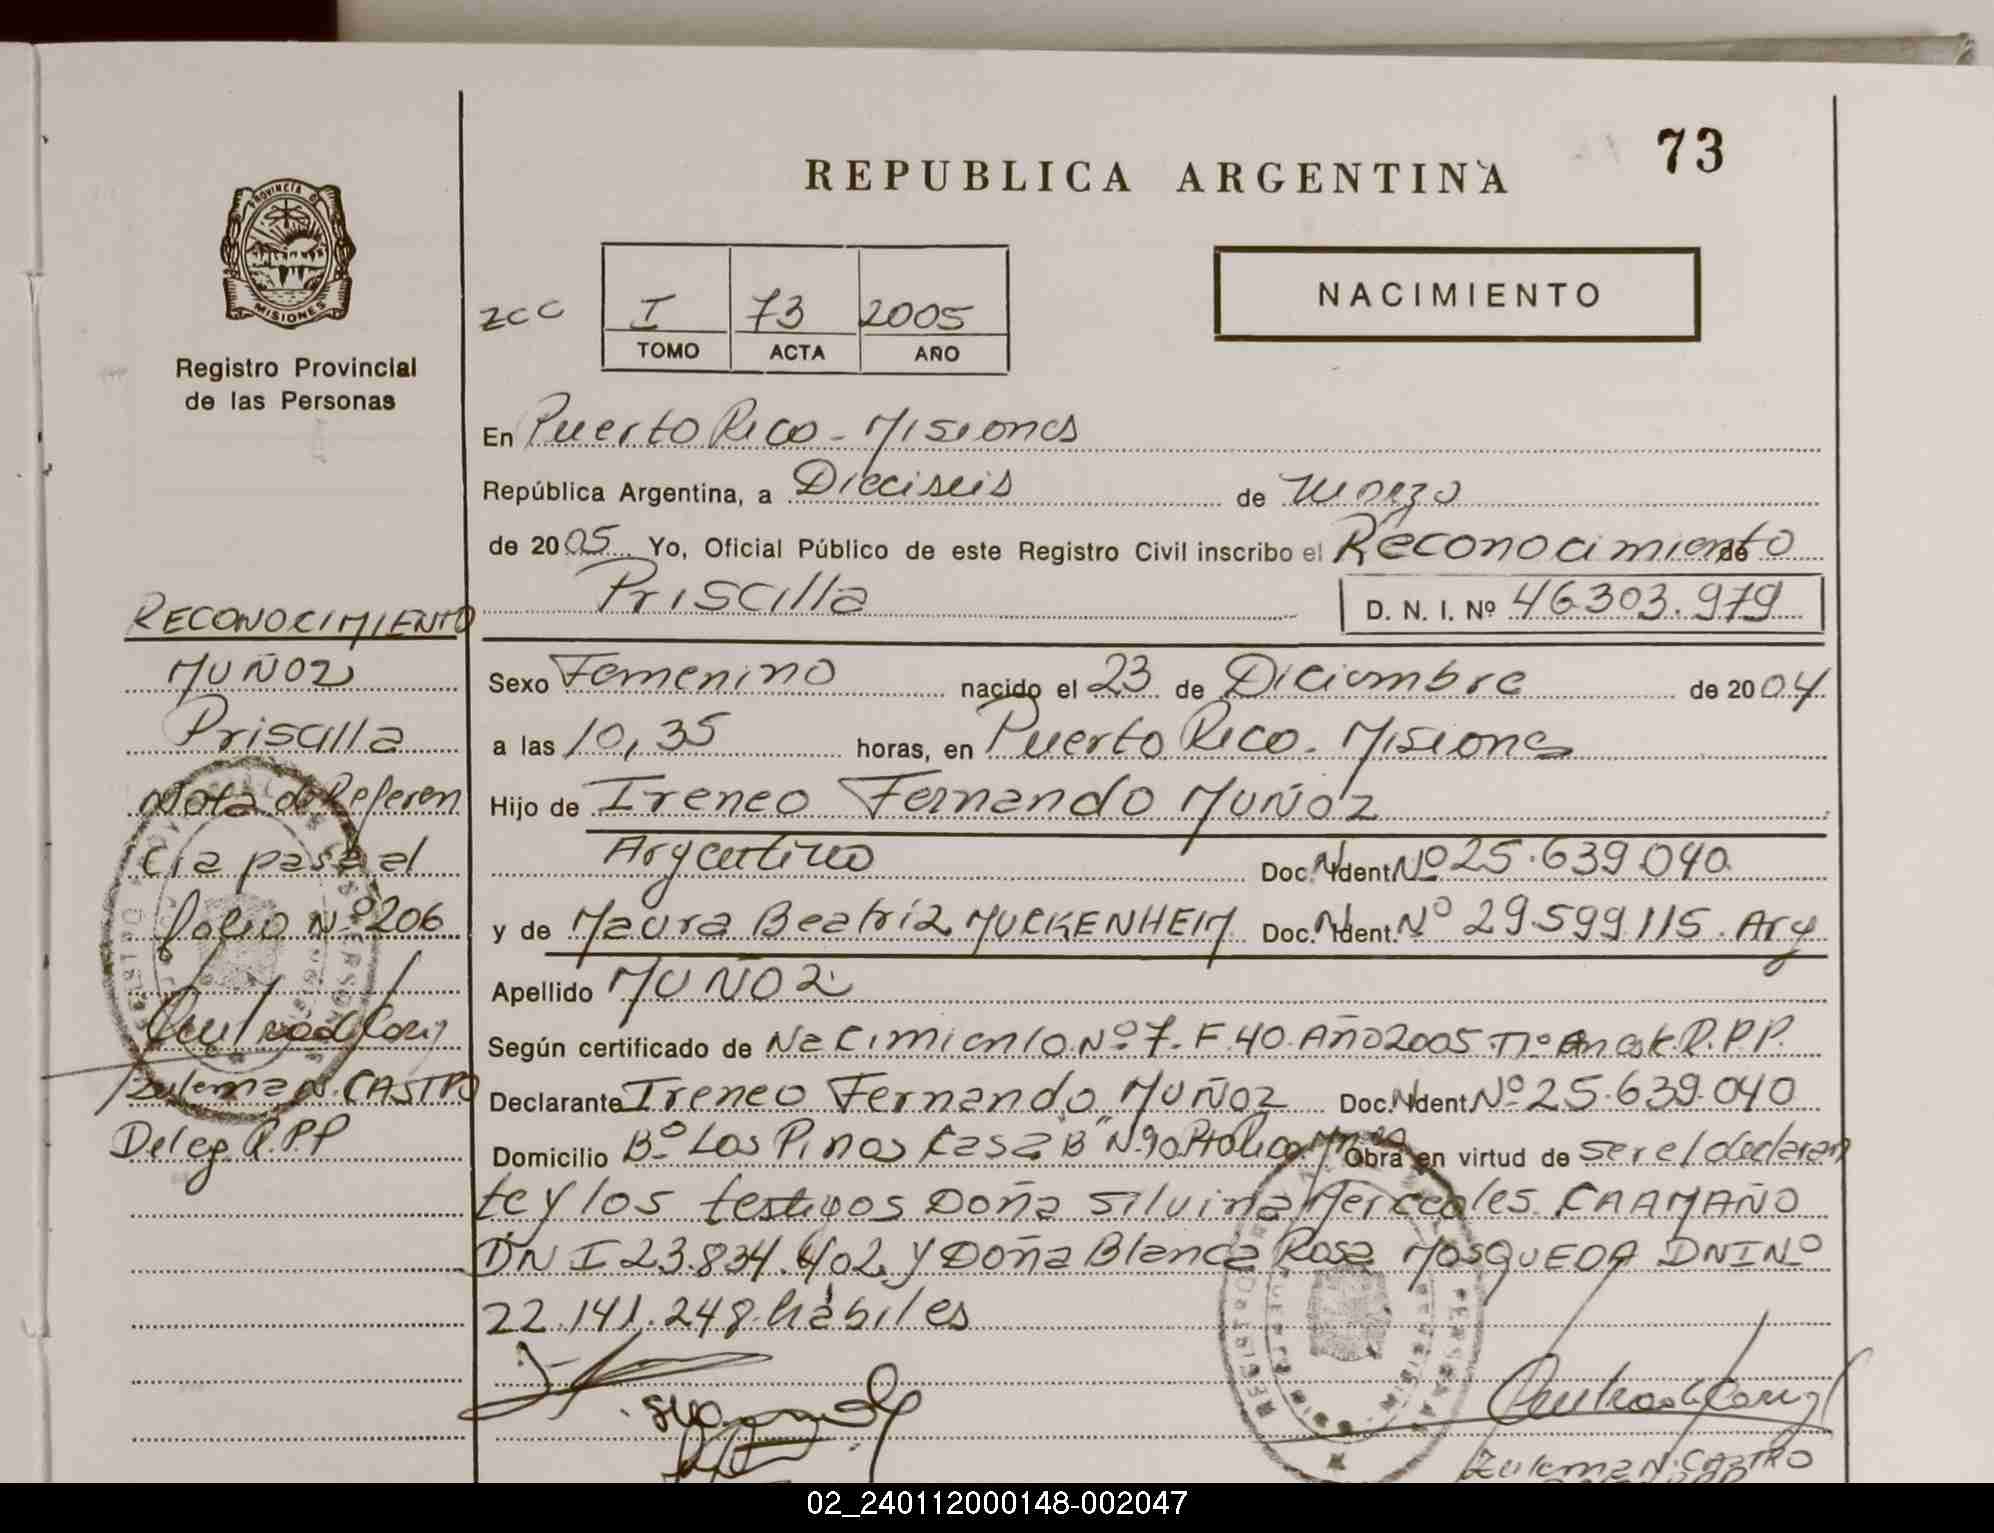 73
REPUBLICA ARGENTINA
PROVINCIA DE
MISIONES
Registro Provincial
de las Personas
ZCC
I 73 2005
TOMO ACTA AÑO
NACIMIENTO
En Puerto Rico - Misiones
República Argentina, a Dieciseis de Marzo
de 2005 Yo, Oficial Público de este Registro Civil inscribo el Reconocimiento de
Priscilla D. N. I. Nº 46.303.979
RECONOCIMIENTO
MUÑOZ
Priscilla
Nota de Referen
cia pasa al
folio Nº 206
Zulema N. CASTRO
Deleg. R.P.P
Sexo Femenino nacido el 23 de Diciembre de 2004
a las 10,35 horas, en Puerto Rico - Misiones
Hijo de Ireneo Fernando MUÑOZ
Argentino Doc. Ident. Nº 25.639.040
y de Maura Beatriz MUCKENHEIM Doc. Ident. Nº 29.599.115. Arg
Apellido MUÑOZ
Según certificado de Nacimiento Nº 7. F. 40. Año 2005 R.P.P.
Declarante Ireneo Fernando MUÑOZ Doc. Ident. Nº 25.639.040
Domicilio Bº Los Pinos Casa "B" Nº Pto Rico Mnes Obra en virtud de ser el declaran
te y los testigos Doña Silvina Mercedes CAAMAÑO
DNI 23.834.402 y Doña Blanca Rosa MOSQUEDA DNI Nº
22.141.248 hábiles
Zulema N. CASTRO
02_240112000148-002047